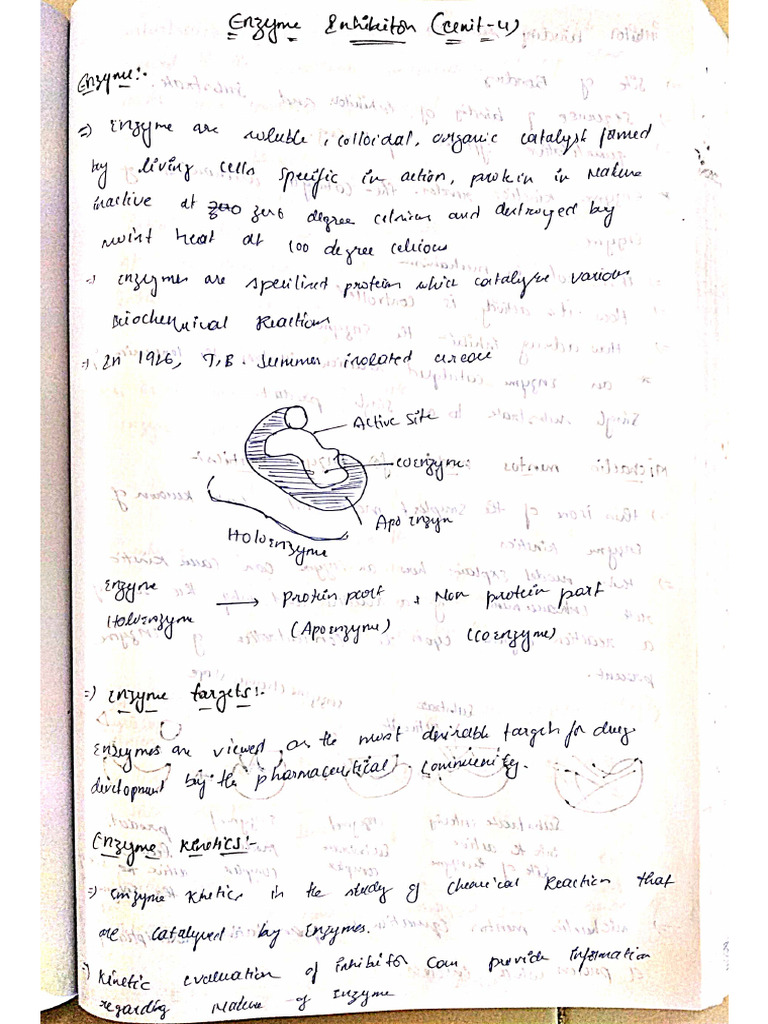 Enzyme Inhibiton (Unit-4)
Enzyme:-
=) Enzyme are soluble, colloidal, organic catalyst formed
by living cells specific in action, protein in Nature
inactive at zero degree celsius and destroyed by
moist heat at 100 degree celcious
=) Enzymes are specilized protein which catalyse various
Biochemical Reactions
=) In 1926, J.B. Summer isolated urease
Active site
coenzyme
Apo enzym
Holoenzyme
Enzyme
Holoenzyme → protein part + Non protein part
(Apoenzyme) (coenzyme)
=) Enzyme targets:-
Enzymes are viewed as the most desirable targets for drug
development by the pharmaceutical community.
Enzyme kinetics:-
=) Enzyme kinetics in the study of chemical Reaction that
are catalysed by Enzymes.
=) kinetic evaluation of inhibitor can provide information
regarding Nature of Enzyme